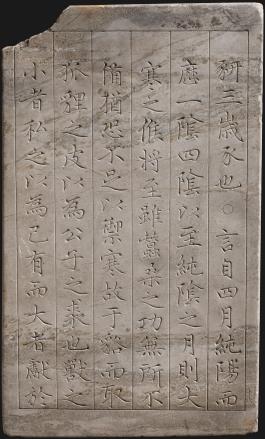 豣三歲豕也○言自四月純陽而
歷一陰四陰以至純陰之月則大
寒之候將至雖蠶桑之功無所不
備猶恐不足以禦寒故于貉而取
狐貍之皮以為公子之裘也獸之
小者私之以為己有而大者獻於